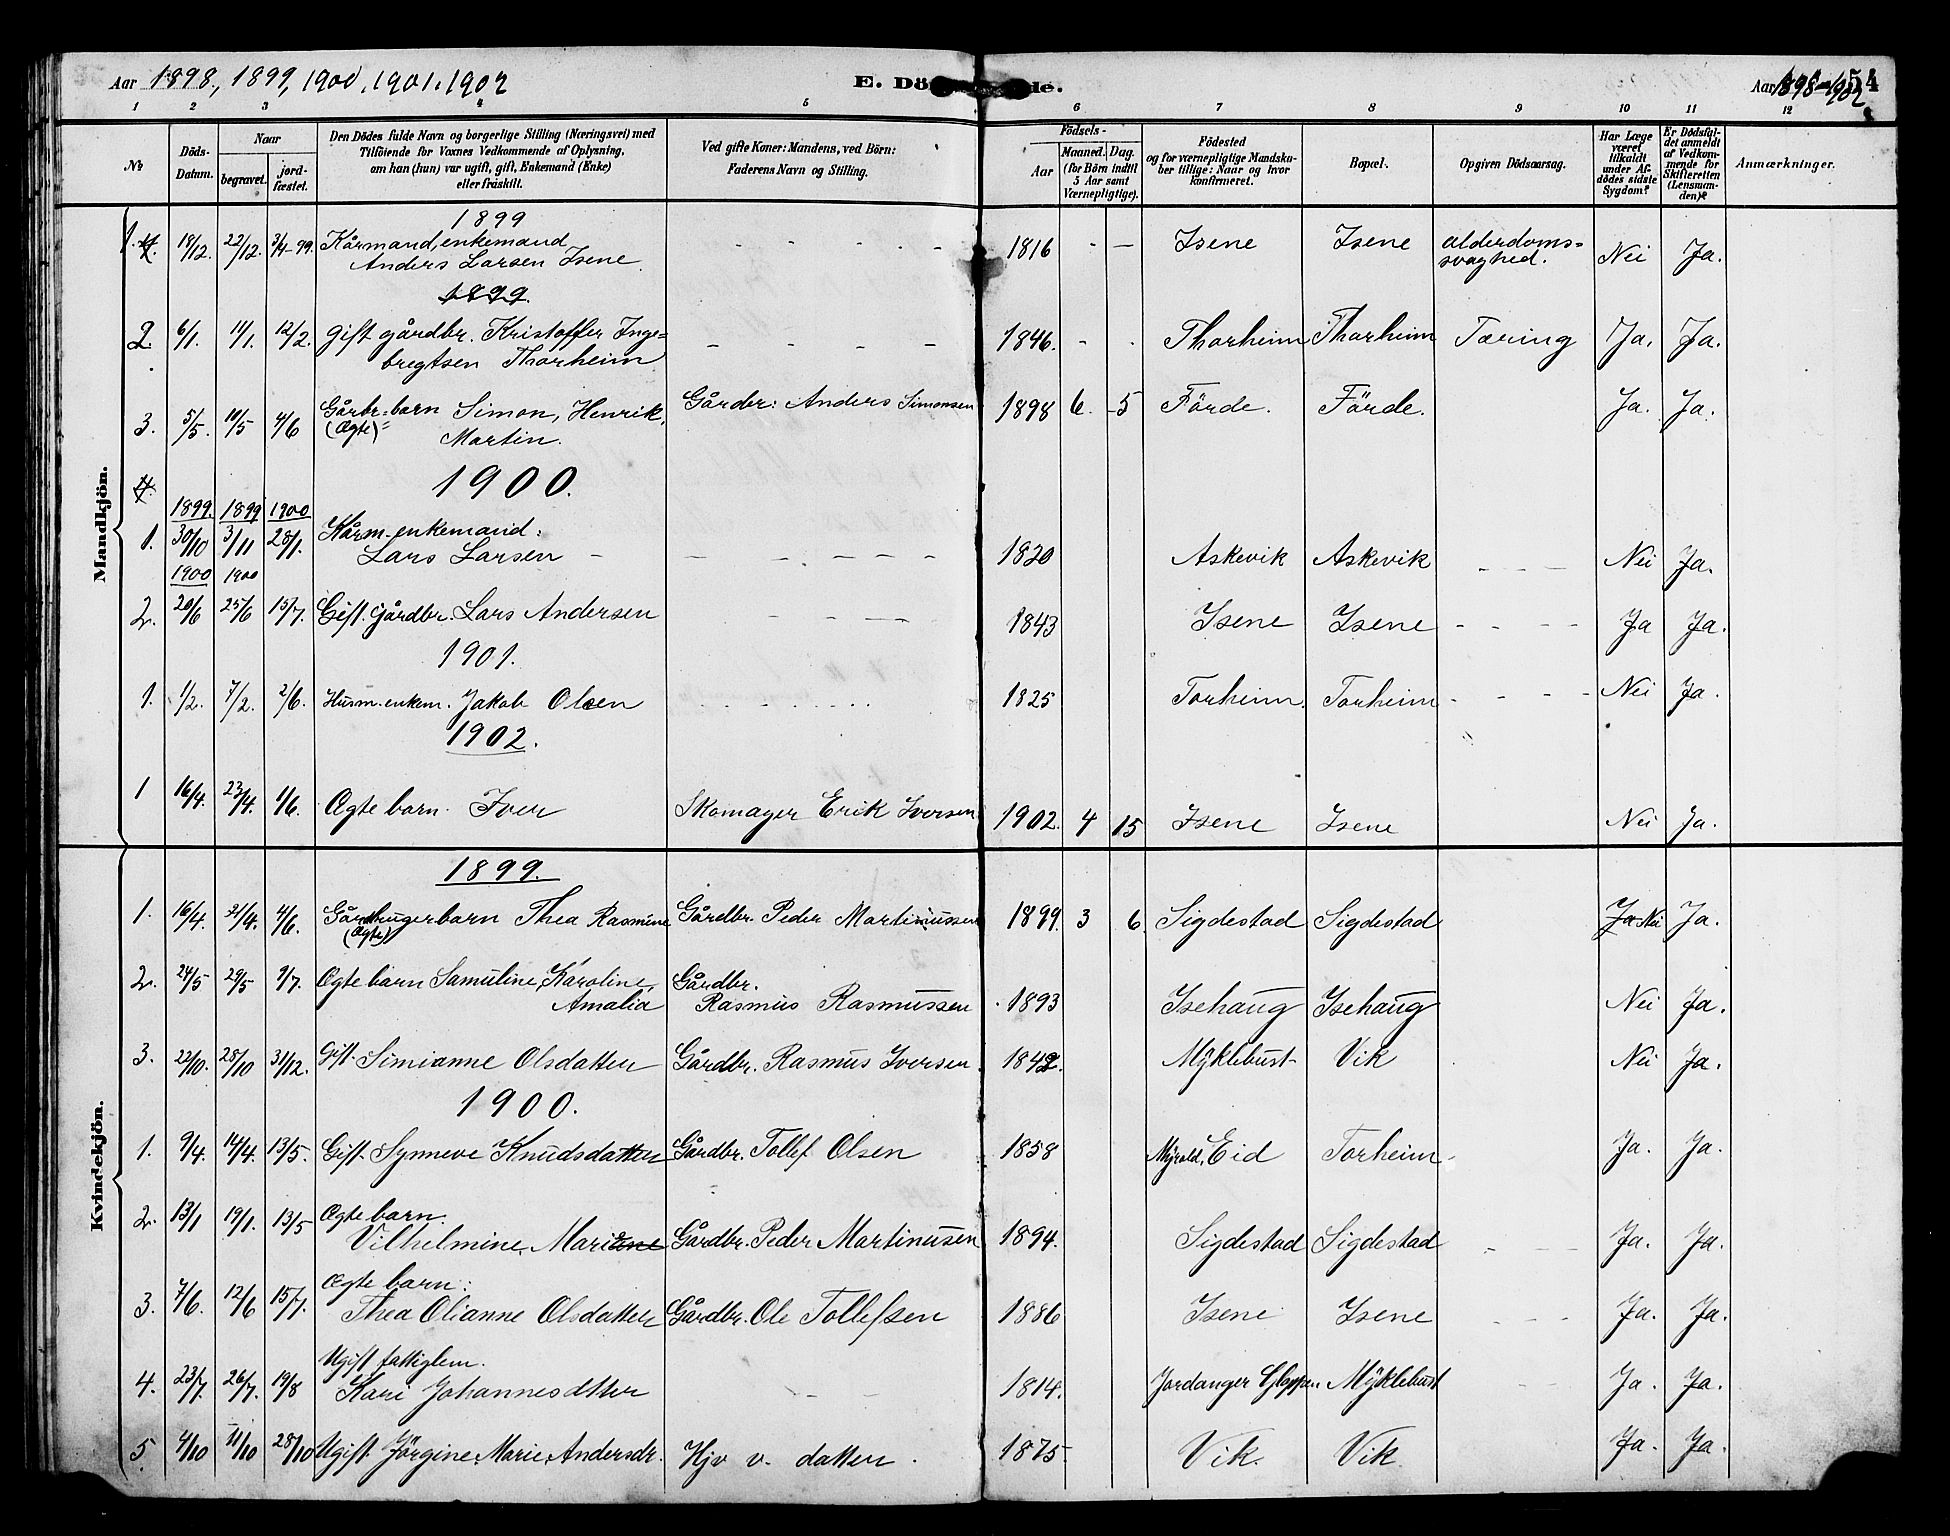 Aar 1898, 1899, 1900, 1901. 1902
E. Dö de.
Aar 1898-1902
54
1 2 3 4 5 6 7 8 9 10 11 12
No
Döds-Datum.
Naar
begravet.
jord-fæstet.
Den Dödes fulde Navn og borgerlige Stilling (Næringsvei) med
Tilföiende for Voxnes Vedkommende af Oplysning,
om han (hun) var ugift, gift, Enkemand (Enke)
eller fraskilt.
Ved gifte Koner: Mandens, ved Börn:
Faderens Navn og Stilling.
Födsels-
Aar
Maaned. Dag.
(for Börn indtil
5 Aar samt
Værnepligtige).
Födested
og for værnepligtige Mandska-
ber tillige: Naar og hvor
konfirmeret.
Bopæl.
Opgiven Dödsaarsag.
Har Læge
været
tilkaldt
under Af-
dödes sidste
Sygdom?
Er Dödsfal-
det anmeldt
af Vedkom-
mende for
Skifteretten
(Lensman-
den)?
Anmærkninger.
Mandkjön.
1899
1. 4. 18/12. 22/12. 3/4-99. Kårmand, enkemand - - - - - 1816 - - Isene Isene alderdoms= Nei Ja.
Anders Larsen Isene. svaghed.
1899.
2. 6/1. 11/1. 12/2. Gift gårdbr. Kristoffer Inge= - - - - 1846. - - Thorheim Thorheim Tæring Ja. Ja.
bregtsen Thorheim
3. 5/5. 10/5 4/6 Gårbr=barn Simon, Henrik, Gårdbr: Anders Simonsen 1898 6. 5 Förde. Förde. Ja. Ja.
(Ægte)= Martin.
4.
1900.
1899. 1899 1900
1. 30/10 3/11 28/1. Kårm-enkemand:
Lars Larsen - - - - - 1820 Askevik Askevik - - - Nei Ja.
1900 1900
2. 20/6 25/6 15/7. Gift. Gårdbr. Lars Andersen - - - 1843 Isene Isene - - - - Ja Ja.
1901.
1. 1/2. 7/2. 2/6. Husm-enkem. Jakob Olsen - - - - - 1825 Torheim. Torheim - - - - Nei Ja.
1902.
1 16/4. 23/4. 1/6. Ægte barn. Iver Skomager Erik Iversen 1902. 4 15 Isene Isene Nei Ja.
Kvindekjön.
1899.
1. 16/4. 21/4. 4/6. Gårdbrugerbarn Thea Rasmine Gårdbr. Peder Martinussen 1899. 3 6. Sigdestad Sigdestad Ja Nei Ja.
(Ægte)
2. 24/5 29/5 9/7. Ægte barn Samuline, Karoline, Gårdbr.
Amalia Rasmus Rasmussen 1893 Isehaug Isehaug Nei Ja.
3. 22/10. 28/10 31/12. Gift. Simianne Olsdatter Gårdbr. Rasmus Iversen. 1842. Myklebust Vik Nei Ja.
1900.
1. 9/4. 14/4. 13/5. Gift. Synneve Knudsdatter Gårdbr. Tollef Olsen 1858 Myrold, Eid Torheim - Ja. Ja.
2. 13/1 19/1. 13/5 Ægte barn.
Vilhelmine, Mariane Gårdbr. Peder Martinusen 1894. Sigdestad Sigdestad - - - Ja. Ja.
3. 7/6. 12/6 15/7. Ægte barn:
Thea Olianne Olsdatter Gårdbr. Ole Tollefsen 1886 Isene Isene - - - Ja. Ja.
4. 23/7. 26/7. 19/8 Ugift fattiglem.
Kari Johannesdtter - - 1814. Jordanger Gloppen Myklebust - Ja. Ja.
5. 4/10 11/10 28/10 Ugift. Jörgine, Marie, Andersdr. Hjv v. datter. 1875 Vik. Vik. Ja. Ja.